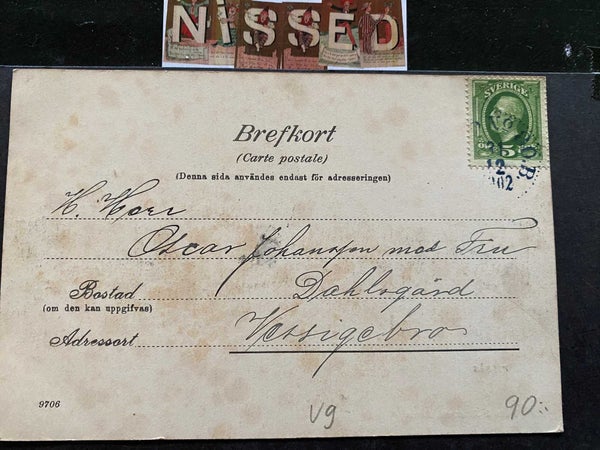 NISSED
SVERIGE
5
12
02
Brefkort
(Carte postale)
(Denna sida användes endast för adresseringen)
H. Herr
Oscar Johansson mos Fru
Bostad Dahlsgård
(om den kan uppgifvas)
Adressort Vessigebro
9706
vg
90:-